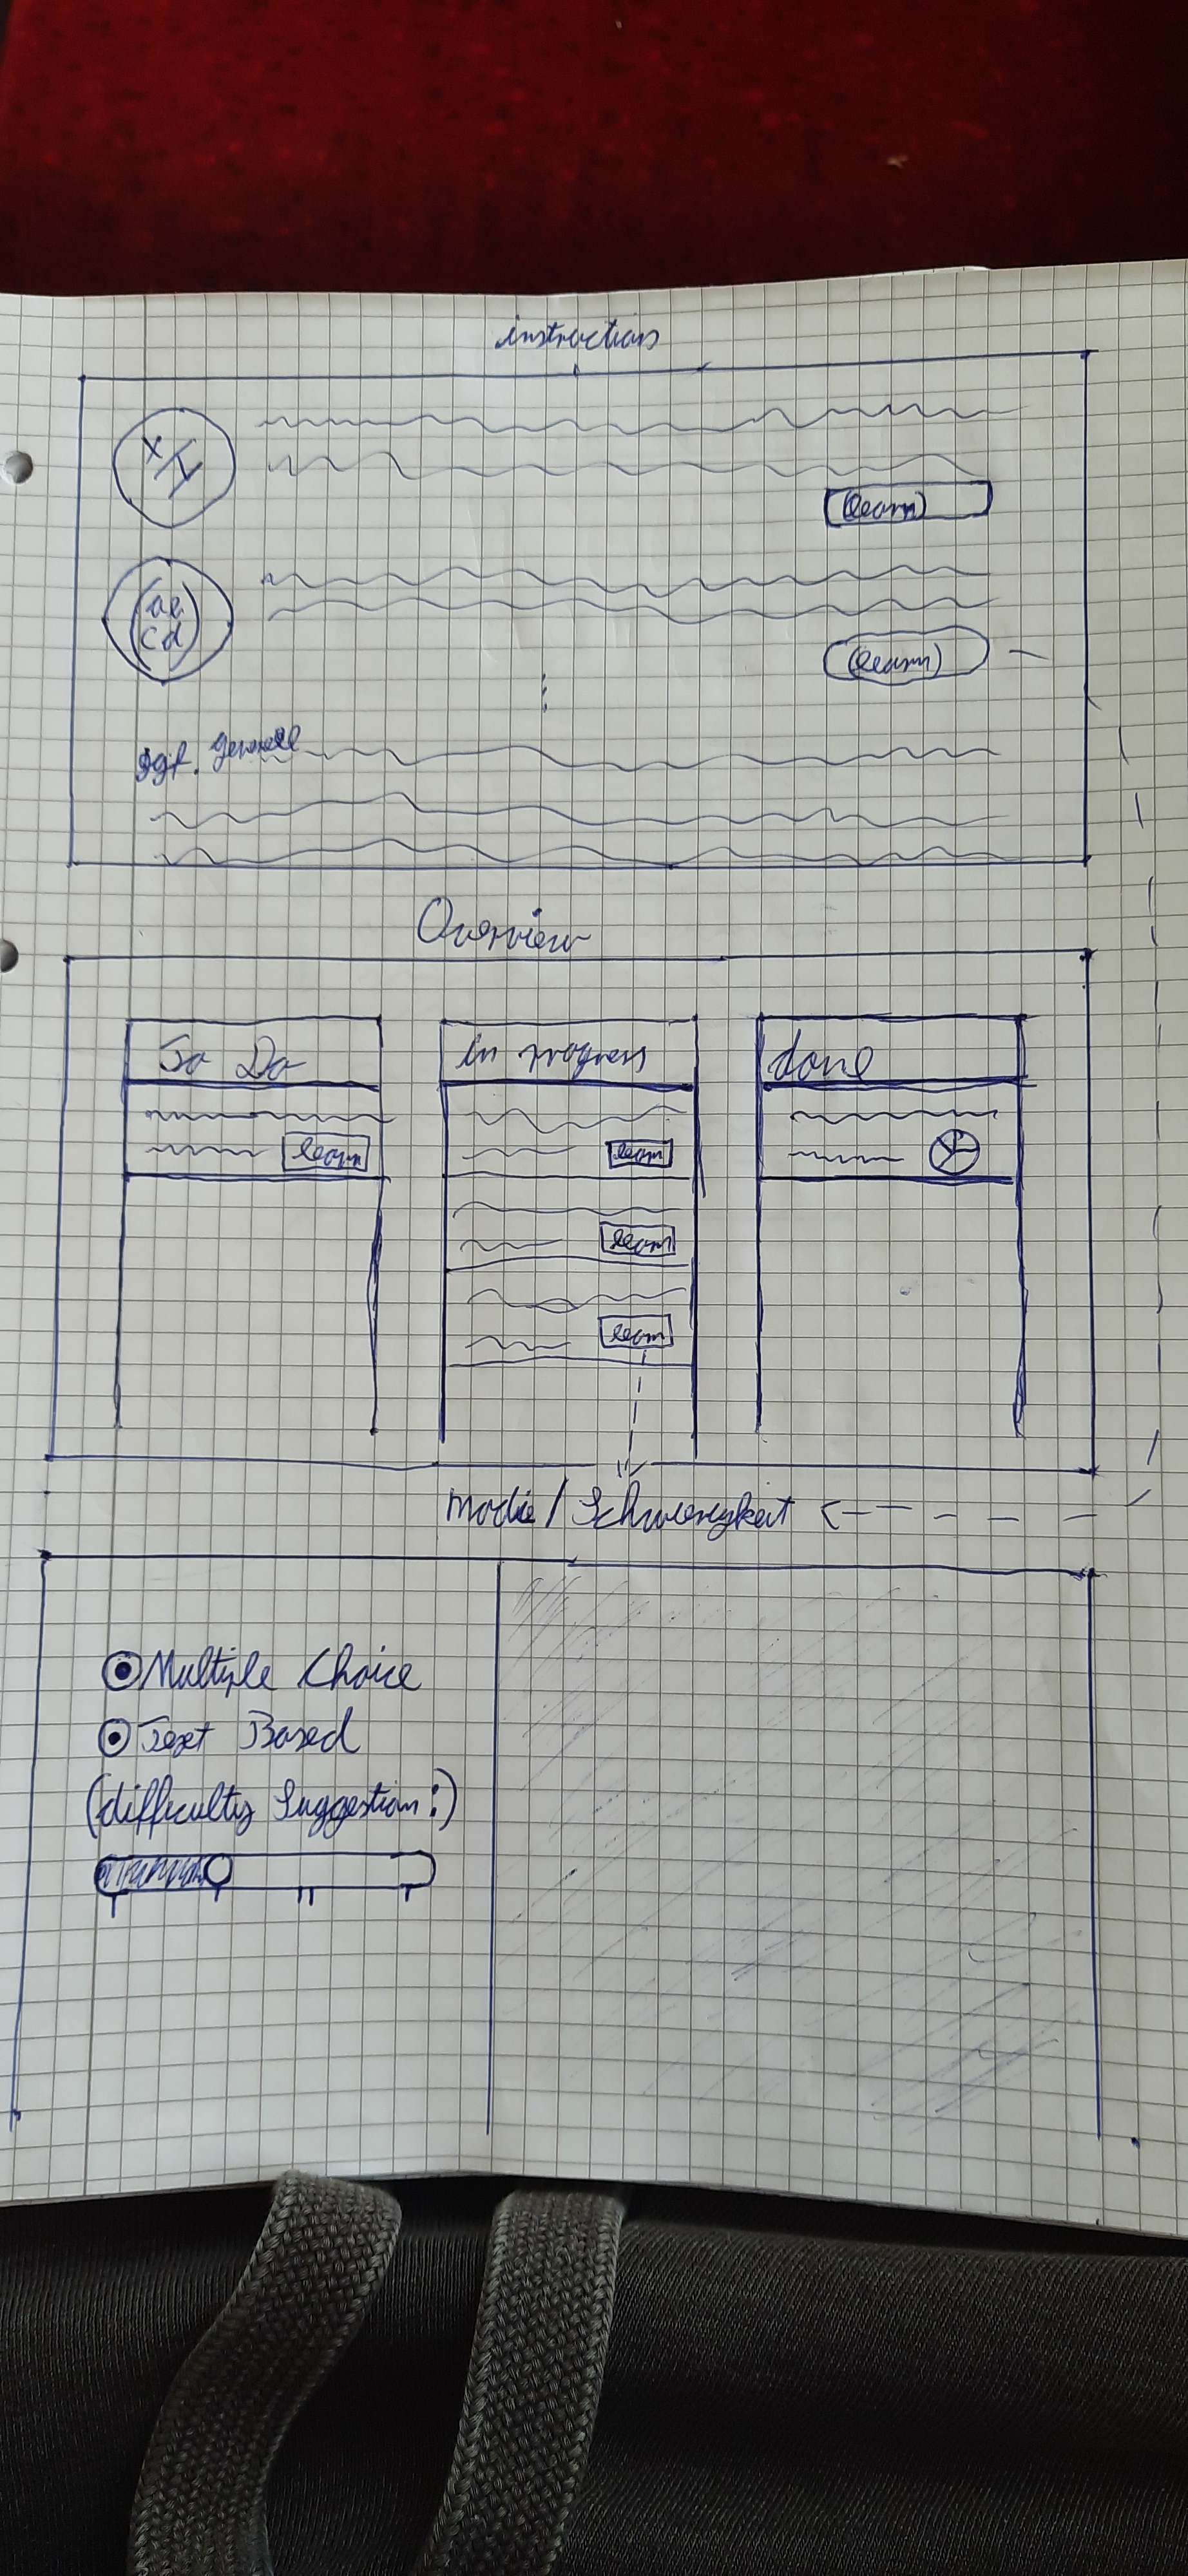 instruction
(learn)
(learn)
ggf. generell
Overview
To Do
in progress
done
learn
learn
learn
learn
modie / Schwierigkeit
Multiple Choice
Text Based
(difficulty Suggestion:)